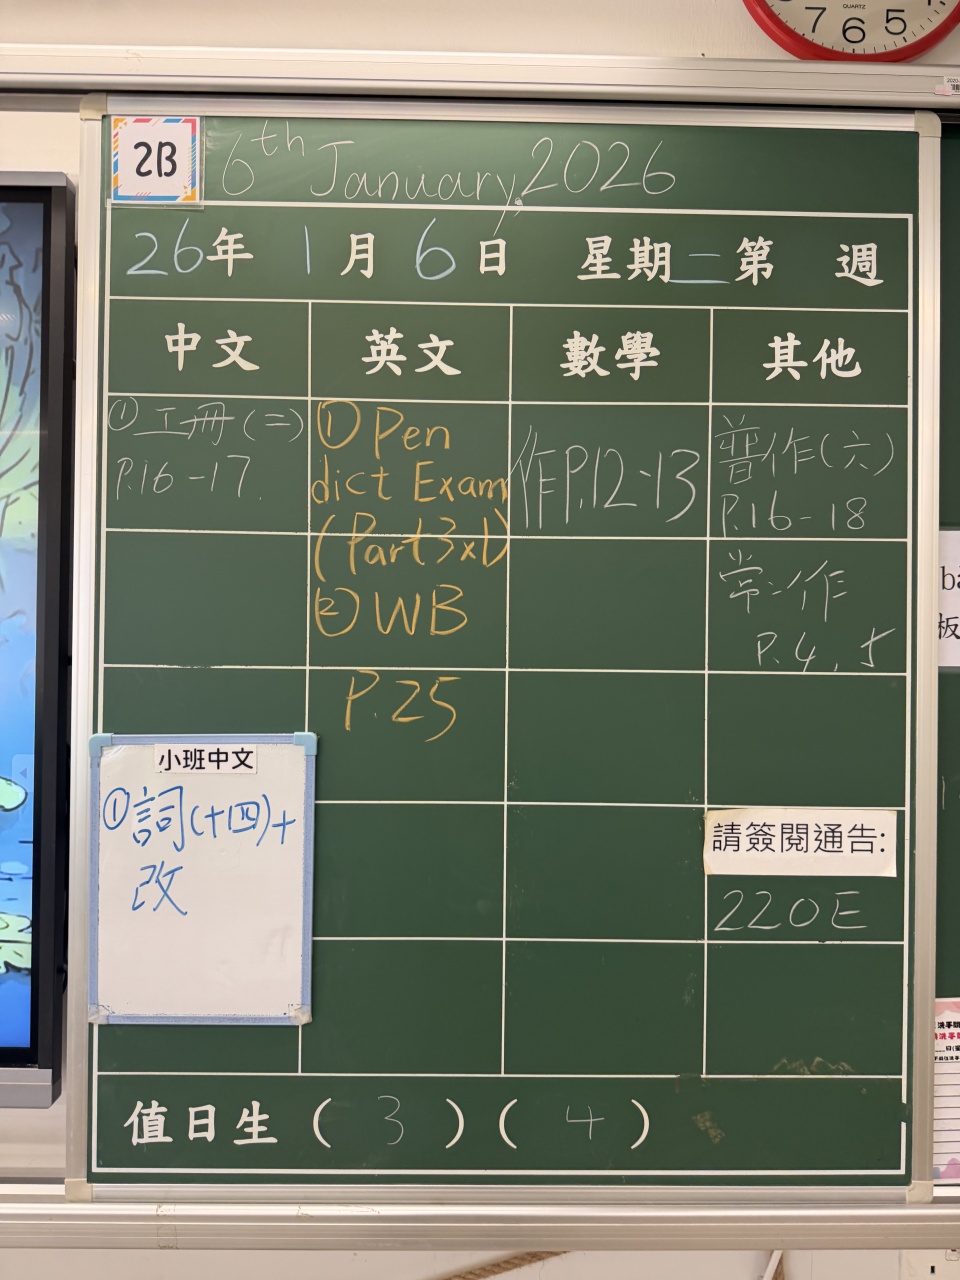 QUARTZ
7 6 5
2B
6th January, 2026
26年 1月 6日 星期二 第 週
中文 英文 數學 其他
① 工冊(二)
P.16-17.
① Pen
dict Exam
(Part3x1)
② WB
P.25
作P.12-13
普作(六)
P.16-18
常:作
P.4,5
小班中文
① 詞(十四)+
改
請簽閱通告:
220E
值日生 ( 3 ) ( 4 )
板